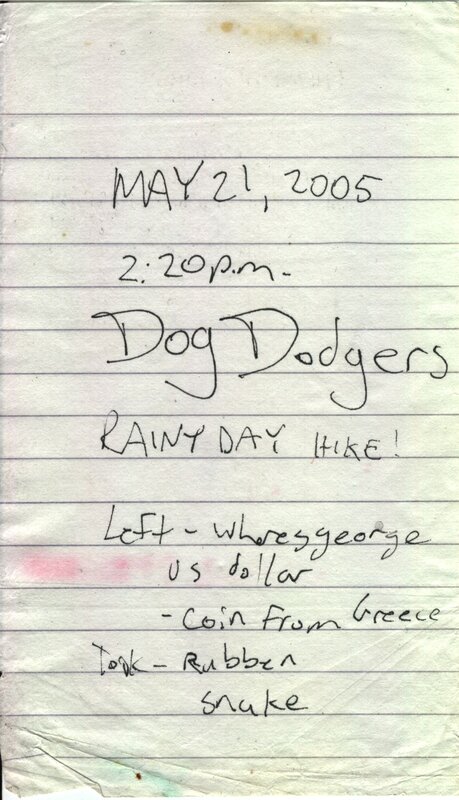 MAY 21, 2005
2:20p.m.
Dog Dodgers
RAINY DAY HIKE!
Left - wheresgeorge
US dollar
- Coin From Greece
Took - Rubber
snake